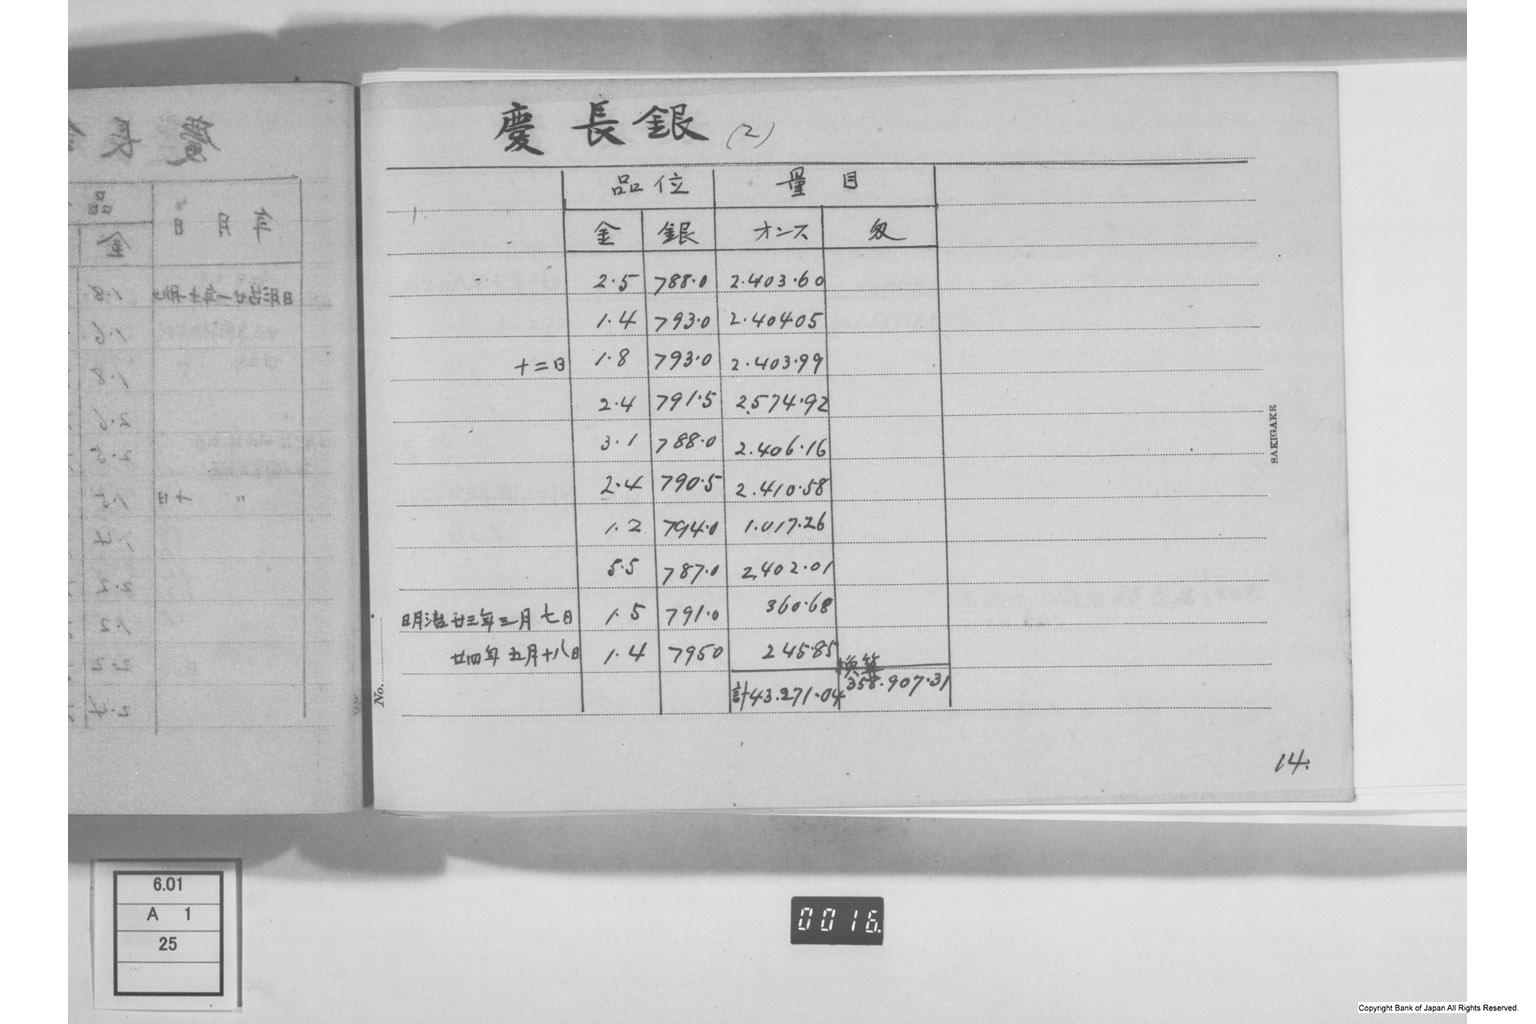 慶長銀 (2)
品位 量目
金 銀 オンス 匁
2.5 788.0 2.403.60
1.4 793.0 2.40405
十二日 1.8 793.0 2.403.99
2.4 791.5 2.574.92
3.1 788.0 2.406.16
2.4 790.5 2.410.58
1.2 794.0 1.017.26
5.5 787.0 2.402.01
明治廿三年三月七日 1.5 791.0 360.68
廿四年五月十八日 1.4 7950 245.85
換算
計43.271.04 358.907.31
No.
SAKIGAKE
14.
6.01
A 1
25
0016
Copyright Bank of Japan All Rights Reserved.